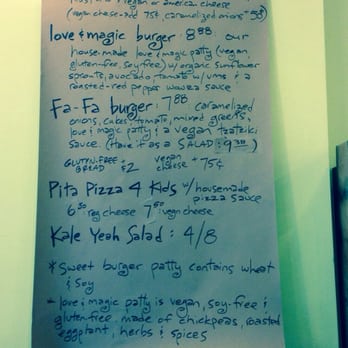 vegan or america cheese
(vegan cheese-add 75¢, caramelized onions + 50)
love & magic burger: 8.88 our
house-made love & magic patty (vegan,
gluten-free, soy-free) w/ organic sunflower
sprouts, avocado, tomato w/ums & a
roasted-red pepper wowza sauce
Fa-Fa burger: 7.88 caramelized
onions, cukes, tomato, mixed greens,
love & magic patty & a vegan tzatziki
sauce. (Have it as a SALAD: 9.30)
GLUTEN-FREE BREAD +$2 vegan cheese + 75¢
Pita Pizza 4 Kids w/housemade
pizza sauce
6.50 reg cheese 7.50 vegn cheese
Kale Yeah Salad: 4/8
* Sweet burger patty contains wheat
& soy
- love & magic patty is vegan, soy-free &
gluten-free. made of chickpeas, roasted
eggplant, herbs & spices